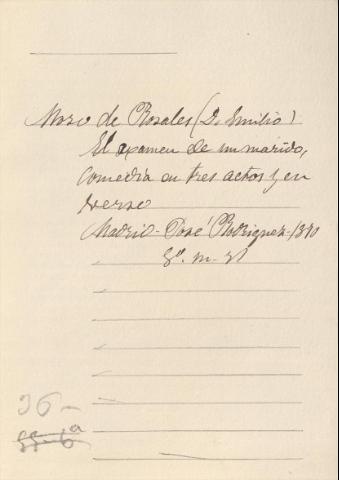 Moro de Rosales (D. Emilio)
El examen de un marido,
comedia en tres actos y en
verso
Madrid - José Rodriguez - 1870
8º. m-
36-